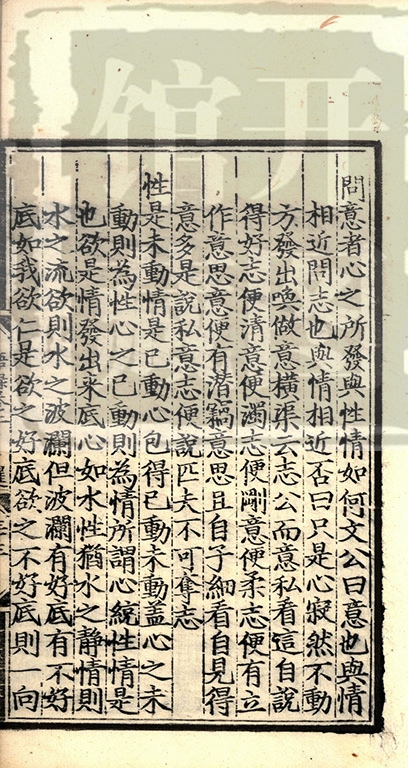 問意者心之所發與性情如何文公曰意也與情
相近問志也與情相近否曰只是心寂然不動
方發出喚做意橫渠云志公而意私看這自說
得好志便清意便濁志便剛意便柔志便有立
作意思意便有潛竊意思且自子細看自見得
意多是說私意志便說匹夫不可奪志
性是未動情是已動心包得已動未動蓋心之未
動則為性心之已動則為情所謂心統性情是
也欲是情發出來底心如水性猶水之靜情則
水之流欲則水之波瀾但波瀾有好底有不好
底如我欲仁是欲之好底欲之不好底則一向